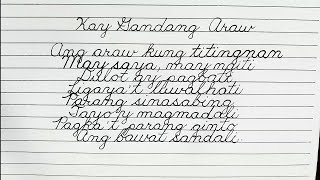 Kay Gandang Araw
Ang araw kung titingnan
May saya, may ngiti
Dulot ay pagbati
Ligaya't luwalhati
Parang sinasabing
Tayo'y magmadali
Pagka't parang ginto
Ang bawat sandali.